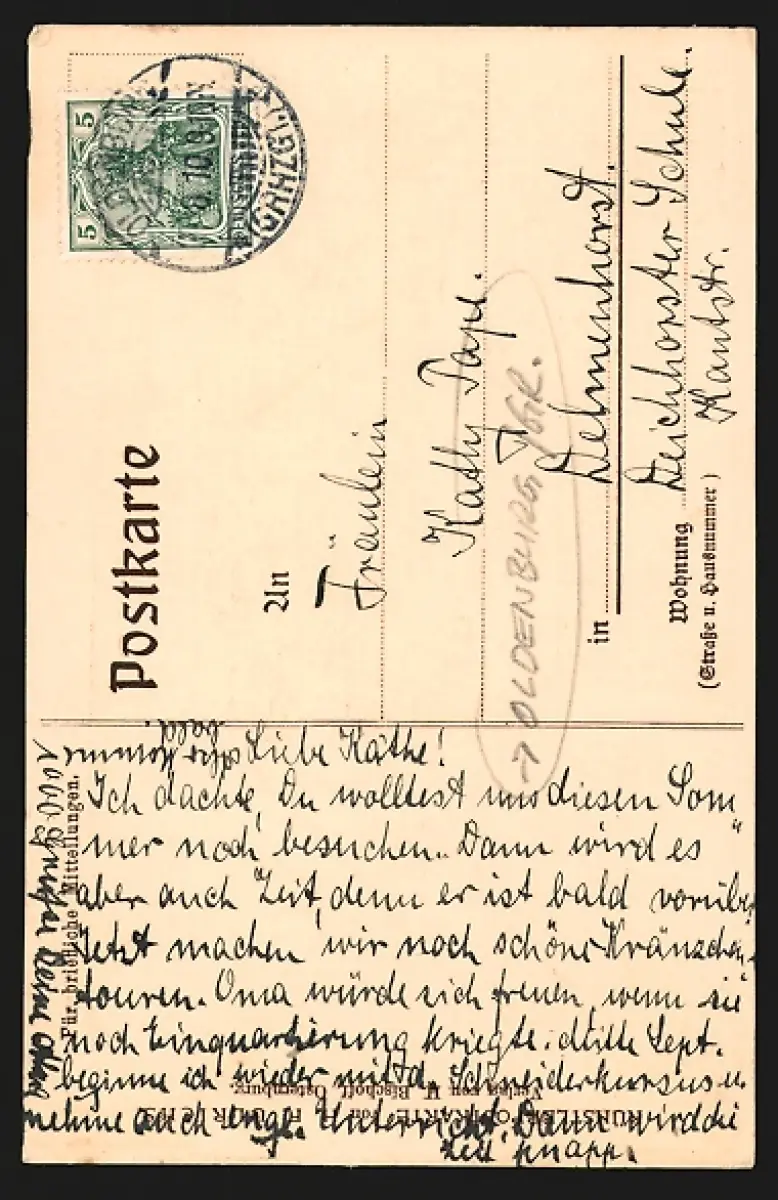 Postkarte
An
Fräulein
Käthy Pape.
Delmenhorst.
in
Wohnung
(Straße u. Hausnummer)
Deichhorster Schule.
Kantstr.
→ OLDENBURG, GR.
5
5
10.9-10
Für briefliche Mitteilungen.
Liebe Käthe!
Ich dachte, Du wolltest uns diesen Som
mer noch besuchen. Dann wird es
aber auch Zeit, denn er ist bald vorüber.
Jetzt machen wir noch schöne Kränzchen
touren. Oma würde sich freuen, wenn sie
noch Einquartierung kriegte. Mitte Sept.
beginne ich wieder mit d. Schneiderkursus u.
nehme auch engl. Unterricht. Dann wird die
Zeit knapp.
Also komme
bald.
1000 Grüße Deine
KÜNSTLERPOSTKARTE
Verlag von H. Bischoff, Osternburg